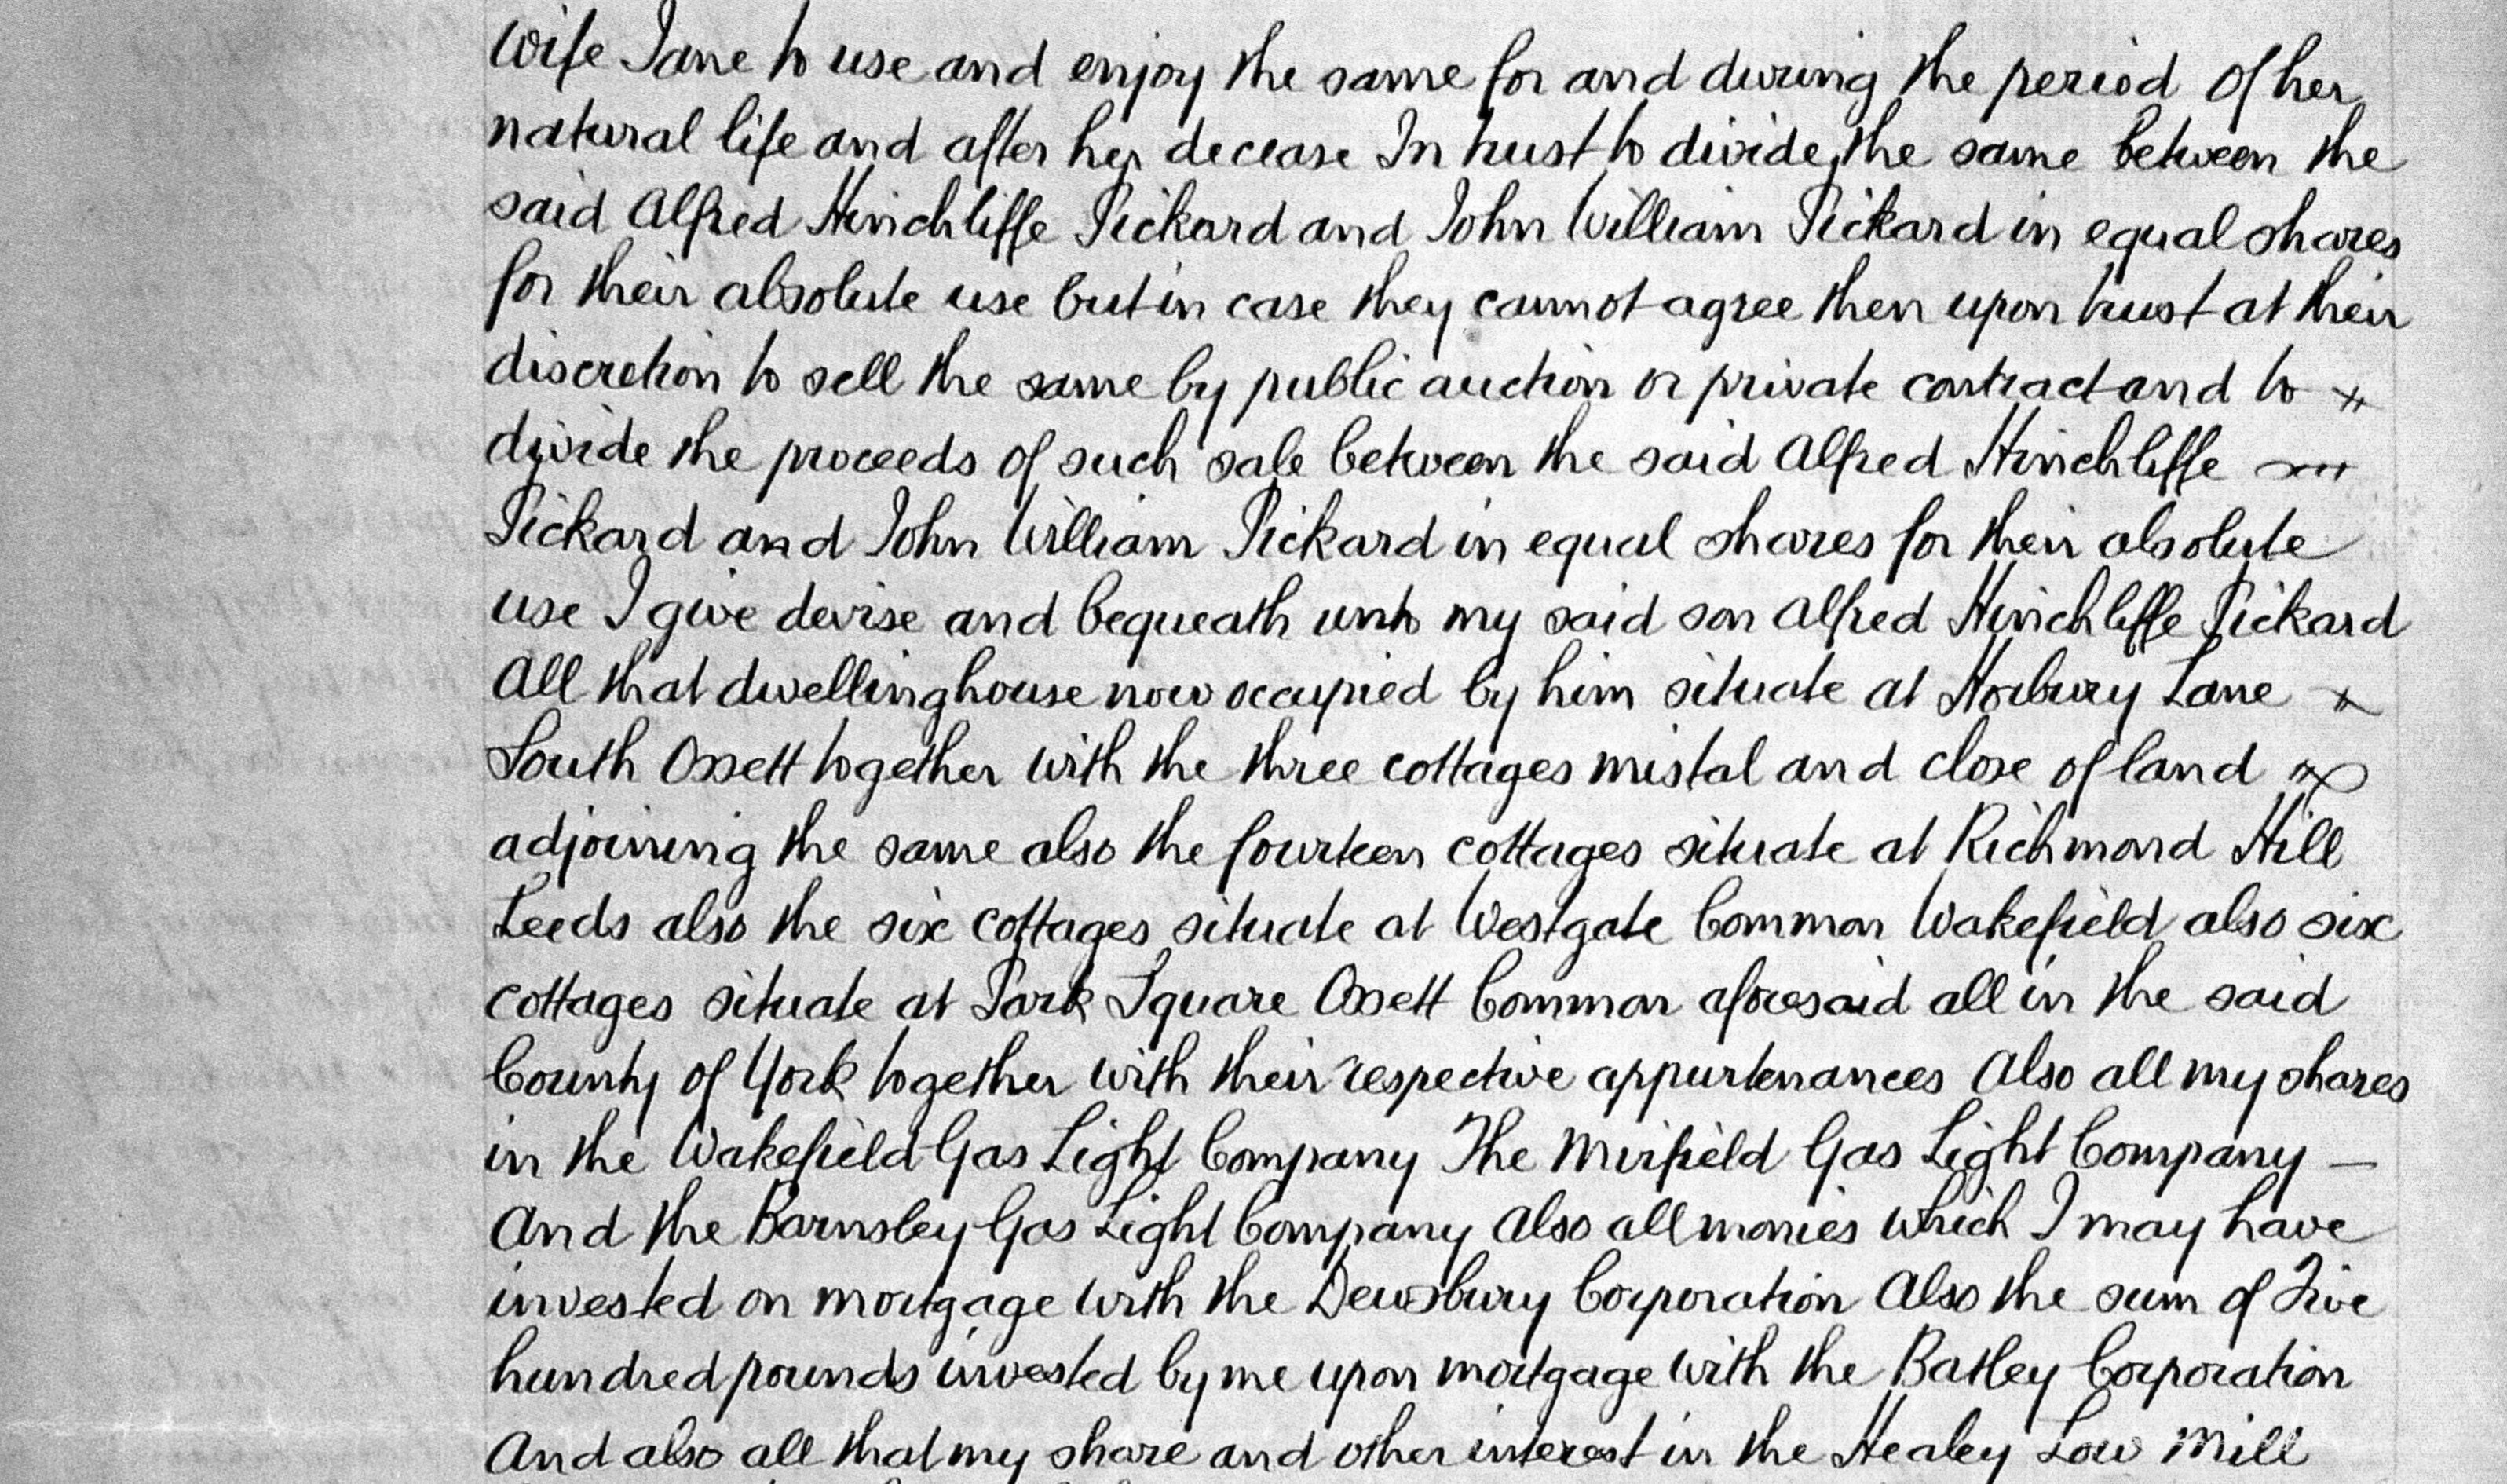 wife Jane to use and enjoy the same for and during the period of her
natural life and after her decease In trust to divide the same between the
said Alfred Hinchliffe Pickard and John William Pickard in equal shares
for their absolute use but in case they cannot agree then upon trust at their
discretion to sell the same by public auction or private contract and to
divide the proceeds of such sale between the said Alfred Hinchliffe
Pickard and John William Pickard in equal shares for their absolute
use I give devise and bequeath unto my said son Alfred Hinchliffe Pickard
All that dwellinghouse now occupied by him situate at Horbury Lane
South Ossett together with the three cottages mistal and close of land
adjoining the same also the fourteen cottages situate at Richmond Hill
Leeds also the six cottages situate at Westgate Common Wakefield also six
cottages situate at Park Square Ossett Common aforesaid all in the said
County of York together with their respective appurtenances Also all my shares
in the Wakefield Gas Light Company The Mirfield Gas Light Company —
And the Barnsley Gas Light Company Also all monies which I may have
invested on mortgage with the Dewsbury Corporation Also the sum of Five
hundred pounds invested by me upon mortgage with the Batley Corporation
And also all that my share and other interest in the Healey Low Mill